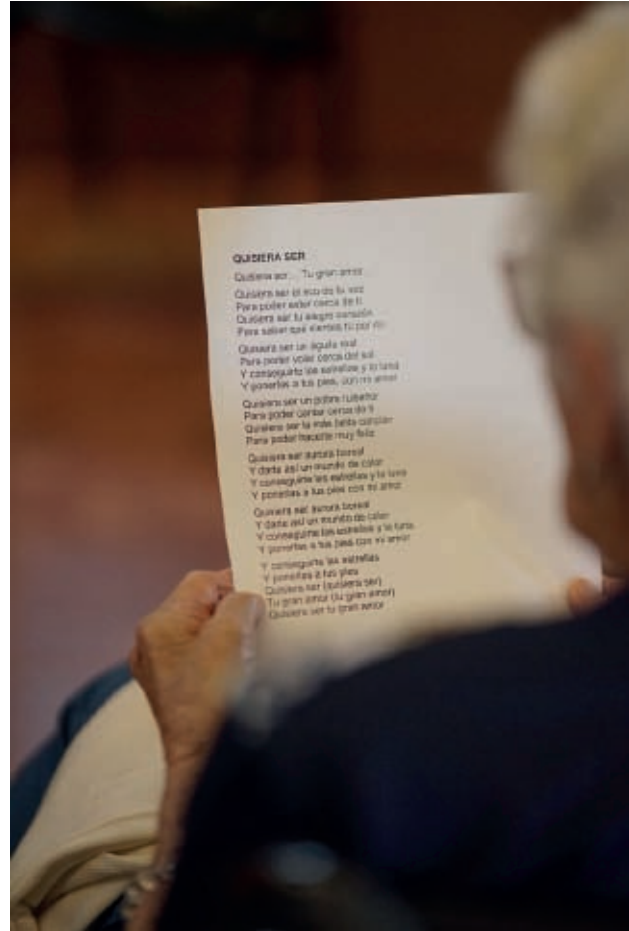 QUISIERA SER
Quisiera ser... Tu gran amor
Quisiera ser el eco de tu voz
Para poder estar cerca de ti
Quisiera ser tu alegre corazón
Para saber qué sientes tú por mí
Quisiera ser un águila real
Para poder volar cerca del sol
Y conseguirte las estrellas y la luna
Y ponerlas a tus pies, con mi amor
Quisiera ser un pobre ruiseñor
Para poder cantar cerca de ti
Quisiera ser la más bella canción
Para poder hacerte muy feliz
Quisiera ser aurora boreal
Y darte así un mundo de color
Y conseguirte las estrellas y la luna
Y ponerlas a tus pies con mi amor
Quisiera ser aurora boreal
Y darte así un mundo de color
Y conseguirte las estrellas y la luna
Y ponerlas a tus pies con mi amor
Y conseguirte las estrellas
Y ponerlas a tus pies
Quisiera ser (quisiera ser)
Tu gran amor (tu gran amor)
Quisiera ser tu gran amor